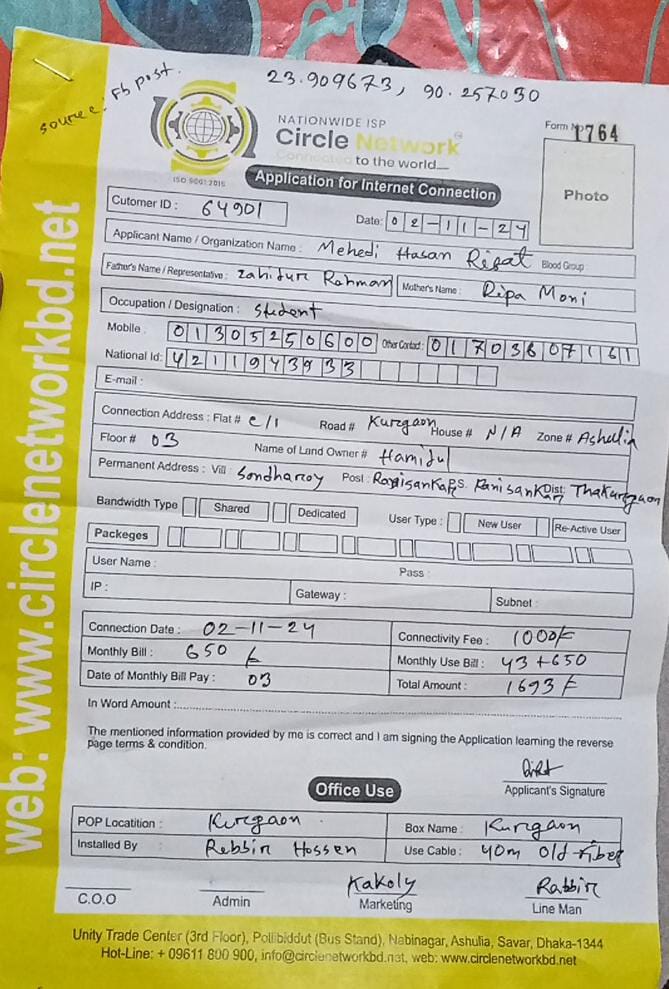 23.909673, 90.257030
source: Fb post.
NATIONWIDE ISP
Circle Network
Connected to the world...
ISO 9001:2015
Form No 1764
Application for Internet Connection
Photo
Cutomer ID : 64901
Date: 02-11-24
Applicant Name / Organization Name : Mehedi Hasan Rifat Blood Group
Father's Name / Representative : Zahidur Rahman Mother's Name : Ripa Moni
Occupation / Designation : Student
Mobile : 01305250600 Other Contact : 01703607161
National Id: 4211943933
E-mail :
Connection Address : Flat # C/1 Road # Kurgaon House # N/A Zone # Ashulia
Floor # 03 Name of Land Owner # Hamidul
Permanent Address : Vill : Sondharoy Post : Ranisankail P.S. Ranisankail Dist: Thakurgaon
Bandwidth Type Shared Dedicated User Type : New User Re-Active User
Packeges
User Name : Pass :
IP : Gateway : Subnet :
Connection Date : 02-11-24 Connectivity Fee : 1000/-
Monthly Bill : 650/- Monthly Use Bill : 43+650
Date of Monthly Bill Pay : 03 Total Amount : 1693/-
In Word Amount :
The mentioned information provided by me is correct and I am signing the Application learning the reverse
page terms & condition.
Applicant's Signature
Office Use
POP Locatition : Kurgaon Box Name : Kurgaon
Installed By Rebbin Hossen Use Cable : 40m Old Fiber
Kakoly Rabbin
C.O.O Admin Marketing Line Man
Unity Trade Center (3rd Floor), Pollibiddut (Bus Stand), Nabinagar, Ashulia, Savar, Dhaka-1344
Hot-Line: + 09611 800 900, info@circlenetworkbd.net, web: www.circlenetworkbd.net
web: www.circlenetworkbd.net